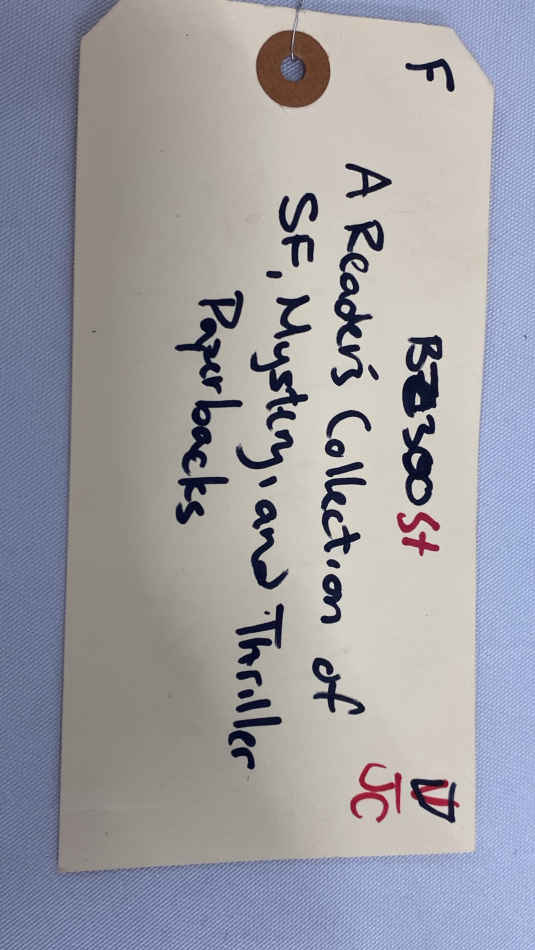 F
St
A Reader's Collection of
SF, Mystery, and Thriller
Paperbacks
JC